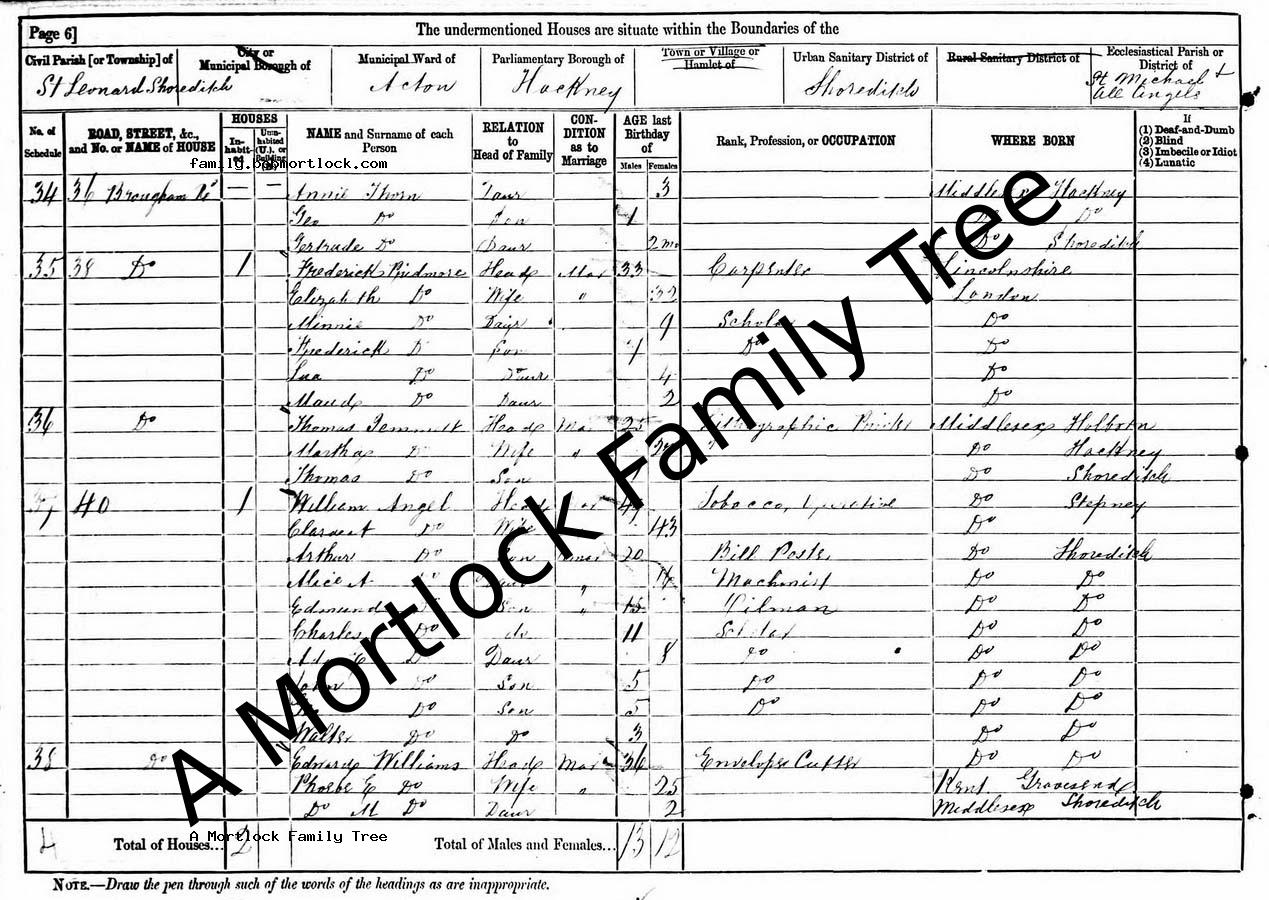 Page 6] The undermentioned Houses are situate within the Boundaries of the
Civil Parish [or Township] of City or Municipal Borough of Municipal Ward of Parliamentary Borough of Town or Village or Hamlet of Urban Sanitary District of Rural Sanitary District of Ecclesiastical Parish or District of
St Leonard Shoreditch Acton Hackney Shoreditch St Michael & All Angels
No. of Schedule ROAD, STREET, &c., and No. or NAME of HOUSE HOUSES Inhabited Uninhabited (U.), or Building (B.) NAME and Surname of each Person RELATION to Head of Family CONDITION as to Marriage AGE last Birthday of Males Females Rank, Profession, or OCCUPATION WHERE BORN If (1) Deaf-and-Dumb (2) Blind (3) Imbecile or Idiot (4) Lunatic
family.bobmortlock.com
34 36 Brougham Rd — — Annie Thorn Daur 3 Middlesex Hackney
Geo Do Son 1 Do Do
Gertrude Do Daur 2 mo Do Shoreditch
35 38 Do 1 Frederick Head Mar 33 Carpenter Lincolnshire
Elizabeth Do Wife " 32 London
Minnie Do Daur 9 Scholar Do
Frederick D Son 7 Do Do
Do Daur 4 Do
Maud Do Daur 2 Do
36 Do Thomas Head Mar 25 Lithographic Middlesex Holborn
Martha D Wife " Do Hackney
Thomas Do Son 1 Do Shoreditch
37 40 1 William Angel Head Tobacco Do Stepney
Do Wife 43 Do
Arthur Do Son 20 Bill Poster Do Shoreditch
Alice A Do Daur " Machinist Do Do
Edmund D Son " 15 Do Do
Charles Do do 11 Scholar Do Do
D Daur 8 do Do Do
John Do Son 5 Do Do Do
Do Son 5 Do Do Do
Walter Do Do 3 Do Do
38 Do Edward Williams Head Mar 36 Envelope Cutter Do Do
Phoebe E Do Wife " 25 Kent Gravesend
Do M Do Daur 2 Middlesex Shoreditch
A Mortlock Family Tree
A Mortlock Family Tree
4 Total of Houses... 2 Total of Males and Females... 13 12
NOTE.—Draw the pen through such of the words of the headings as are inappropriate.